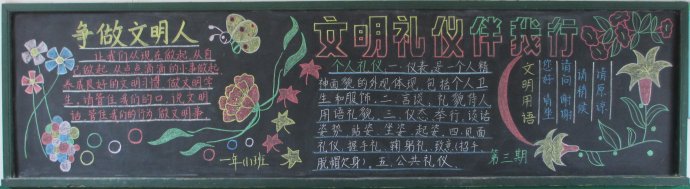 争做文明人
让我们从现在做起,从自
己做起,从点点滴滴的小事做起,
养成良好的文明习惯,做文明学
生,请管住我们的口,说文明
话,管住我们的行为,做文明事。
一年(1)班
文明礼仪伴我行
个人礼仪:一、仪表,是一个人精
神面貌的外观体现,包括个人卫
生和服饰。二、言谈,礼貌待人,
用语礼貌。三、仪态,举行、谈话
姿势、站姿、坐姿、起姿。四、见面
礼仪,握手礼、鞠躬礼、致意(招手、
脱帽欠身)。五、公共礼仪
第三期
文明用语
您好 请坐
请问 谢谢
请稍候
请原谅